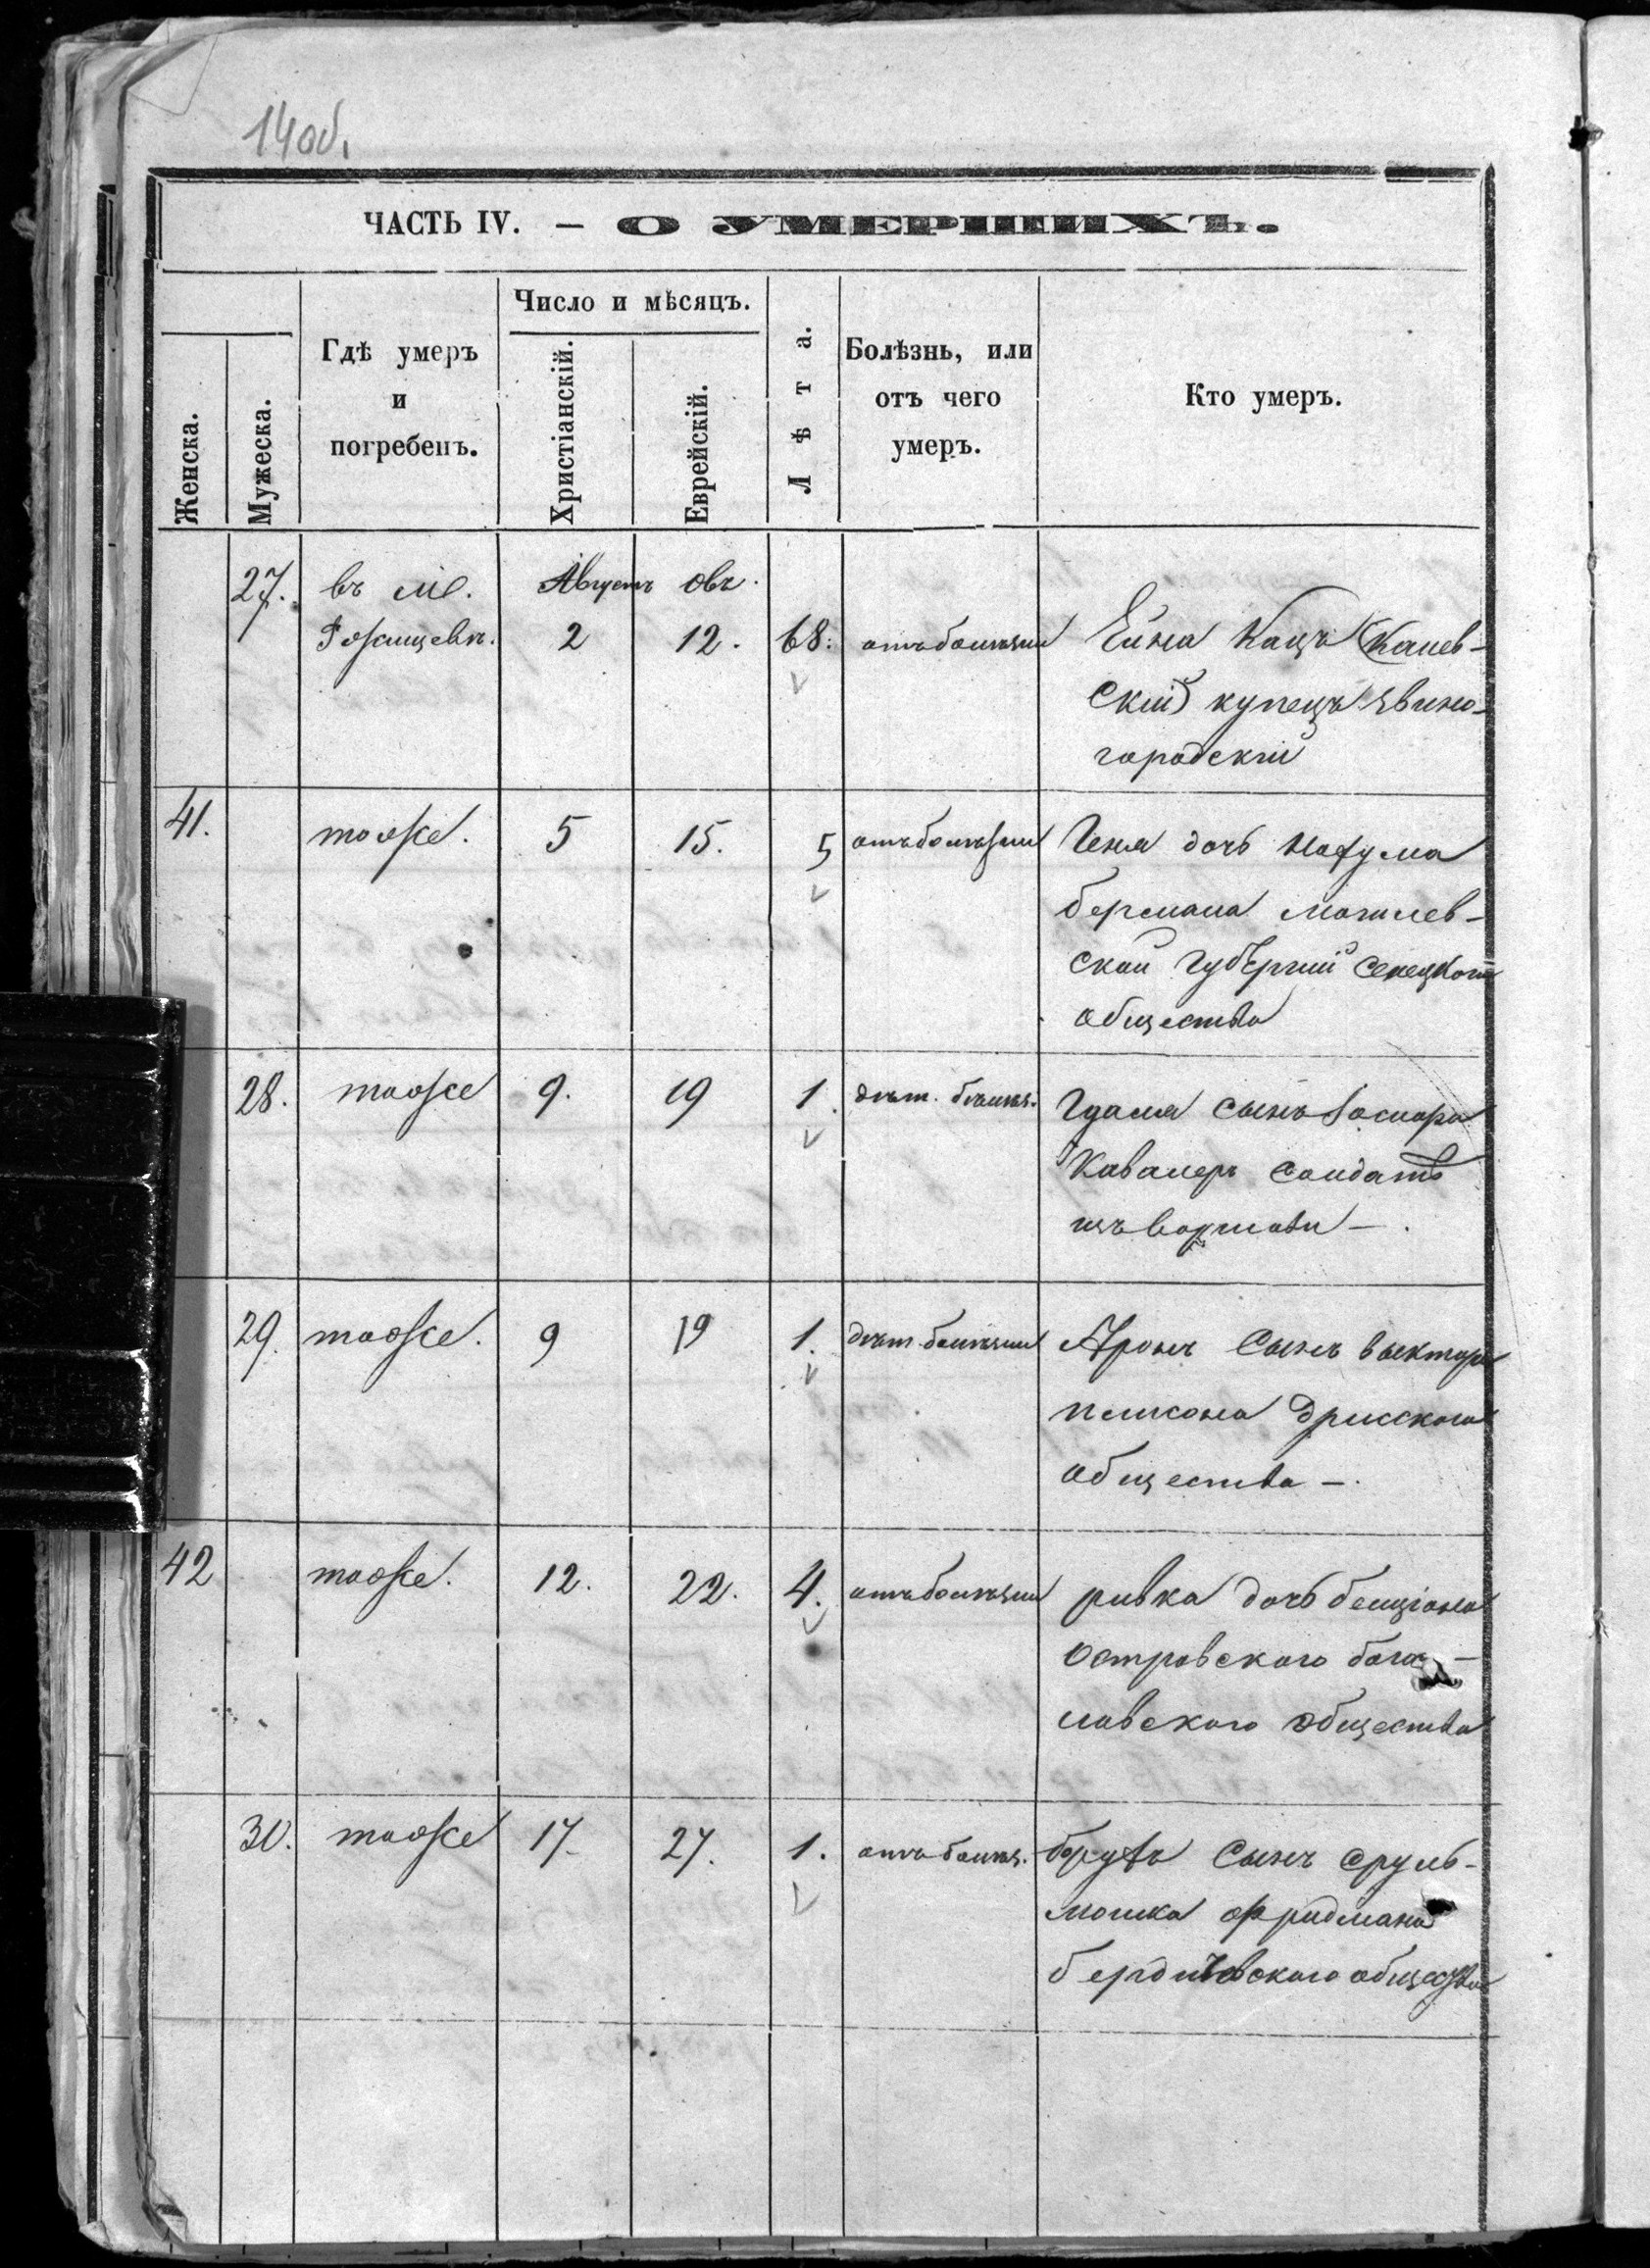 14об.
ЧАСТЬ IV. — О УМЕРШИХЪ.
Женска.
Мужеска.
Гдѣ умеръ
и
погребенъ.
Число и мѣсяцъ.
Христіанскій.
Еврейскій.
Лѣта.
Болѣзнь, или
отъ чего
умеръ.
Кто умеръ.
27. въ м. Августъ овъ.
2 12. 68. отъ болѣзни Кацъ (Канев-
скій) купецъ Звино-
городскій
41. тоже. 5 15. 5 отъ болѣзни Геня дочь Нахума
бермана могилев-
ской губерніи
общества
28. тоже 9. 19 1. дѣт. сынъ
Кавалеръ солдатъ
изъ варшави —.
29. тоже. 9 19 1. дѣт. болѣзни Аронъ Сынъ
общества —.
42 тоже. 12. 22. 4. отъ болѣзни ривка дочь бенціона
островского бога-
славского общества
30. тоже 17. 27. 1. отъ болѣз. борухъ Сынъ сруль-
мошка фридмана
бердичевского общества